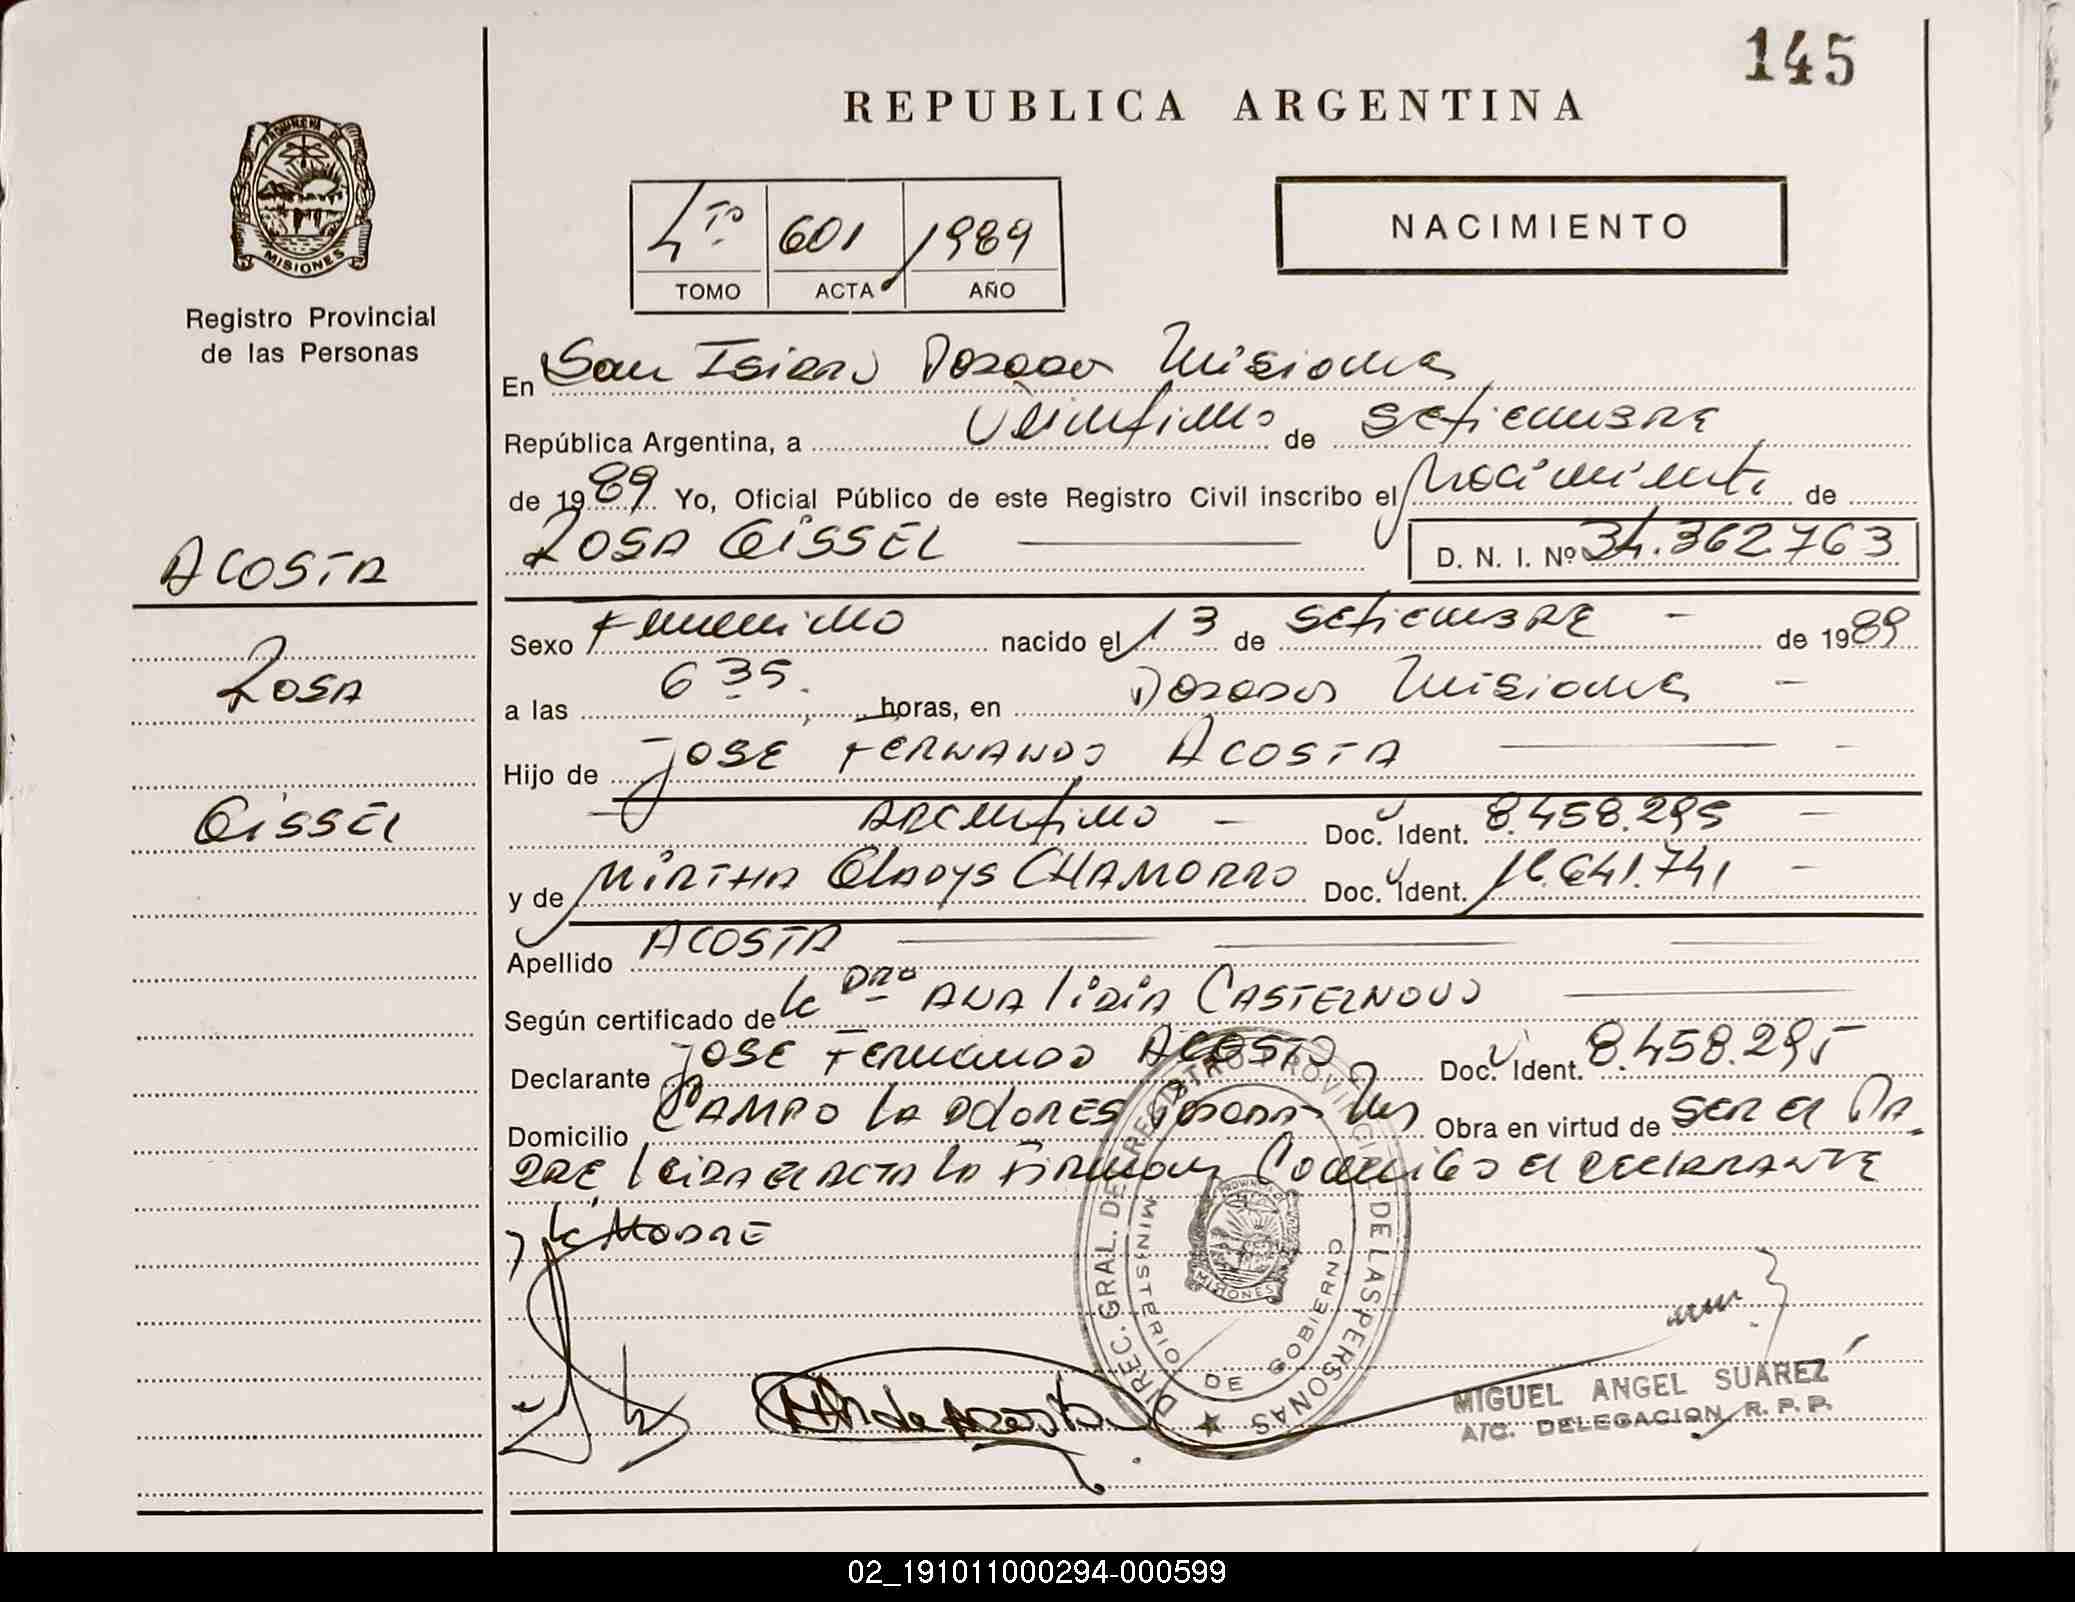 145
REPUBLICA ARGENTINA
PROVINCIA DE
MISIONES
Registro Provincial
de las Personas
4to 601 1989
TOMO ACTA AÑO
NACIMIENTO
En San Isidro Posadas Misiones
República Argentina, a Veintiuno de Setiembre
de 1989 Yo, Oficial Público de este Registro Civil inscribo el Nacimiento de
ROSA GISSEL D. N. I. Nº 34.362.763
ACOSTA
ROSA
GISSEL
Sexo Femenino nacido el 13 de Setiembre - de 1989
a las 6 35. horas, en Posadas Misiones -
Hijo de JOSE FERNANDO ACOSTA
ARGENTINO - Doc. Ident. 8.458.295 -
y de MIRTHA GLADYS CHAMORRO Doc. Ident. 641.741 -
Apellido ACOSTA
Según certificado de la DRA ANA LIDIA CASTELNOVO
Declarante JOSE FERNANDO ACOSTA Doc. Ident. 8.458.295
Domicilio CAMPO LADOLORES Posadas Mis Obra en virtud de SER el PA
DRE, LEIDA el ACTA LA FIRMAN Conmigo el DECLARANTE
y la MADRE
DIREC. GRAL. DEL REGISTRO PROVINCIAL DE LAS PERSONAS
MINISTERIO DE GOBIERNO
MISIONES
de Acosta
MIGUEL ANGEL SUAREZ
A/C. DELEGACION R. P. P.
02_191011000294-000599